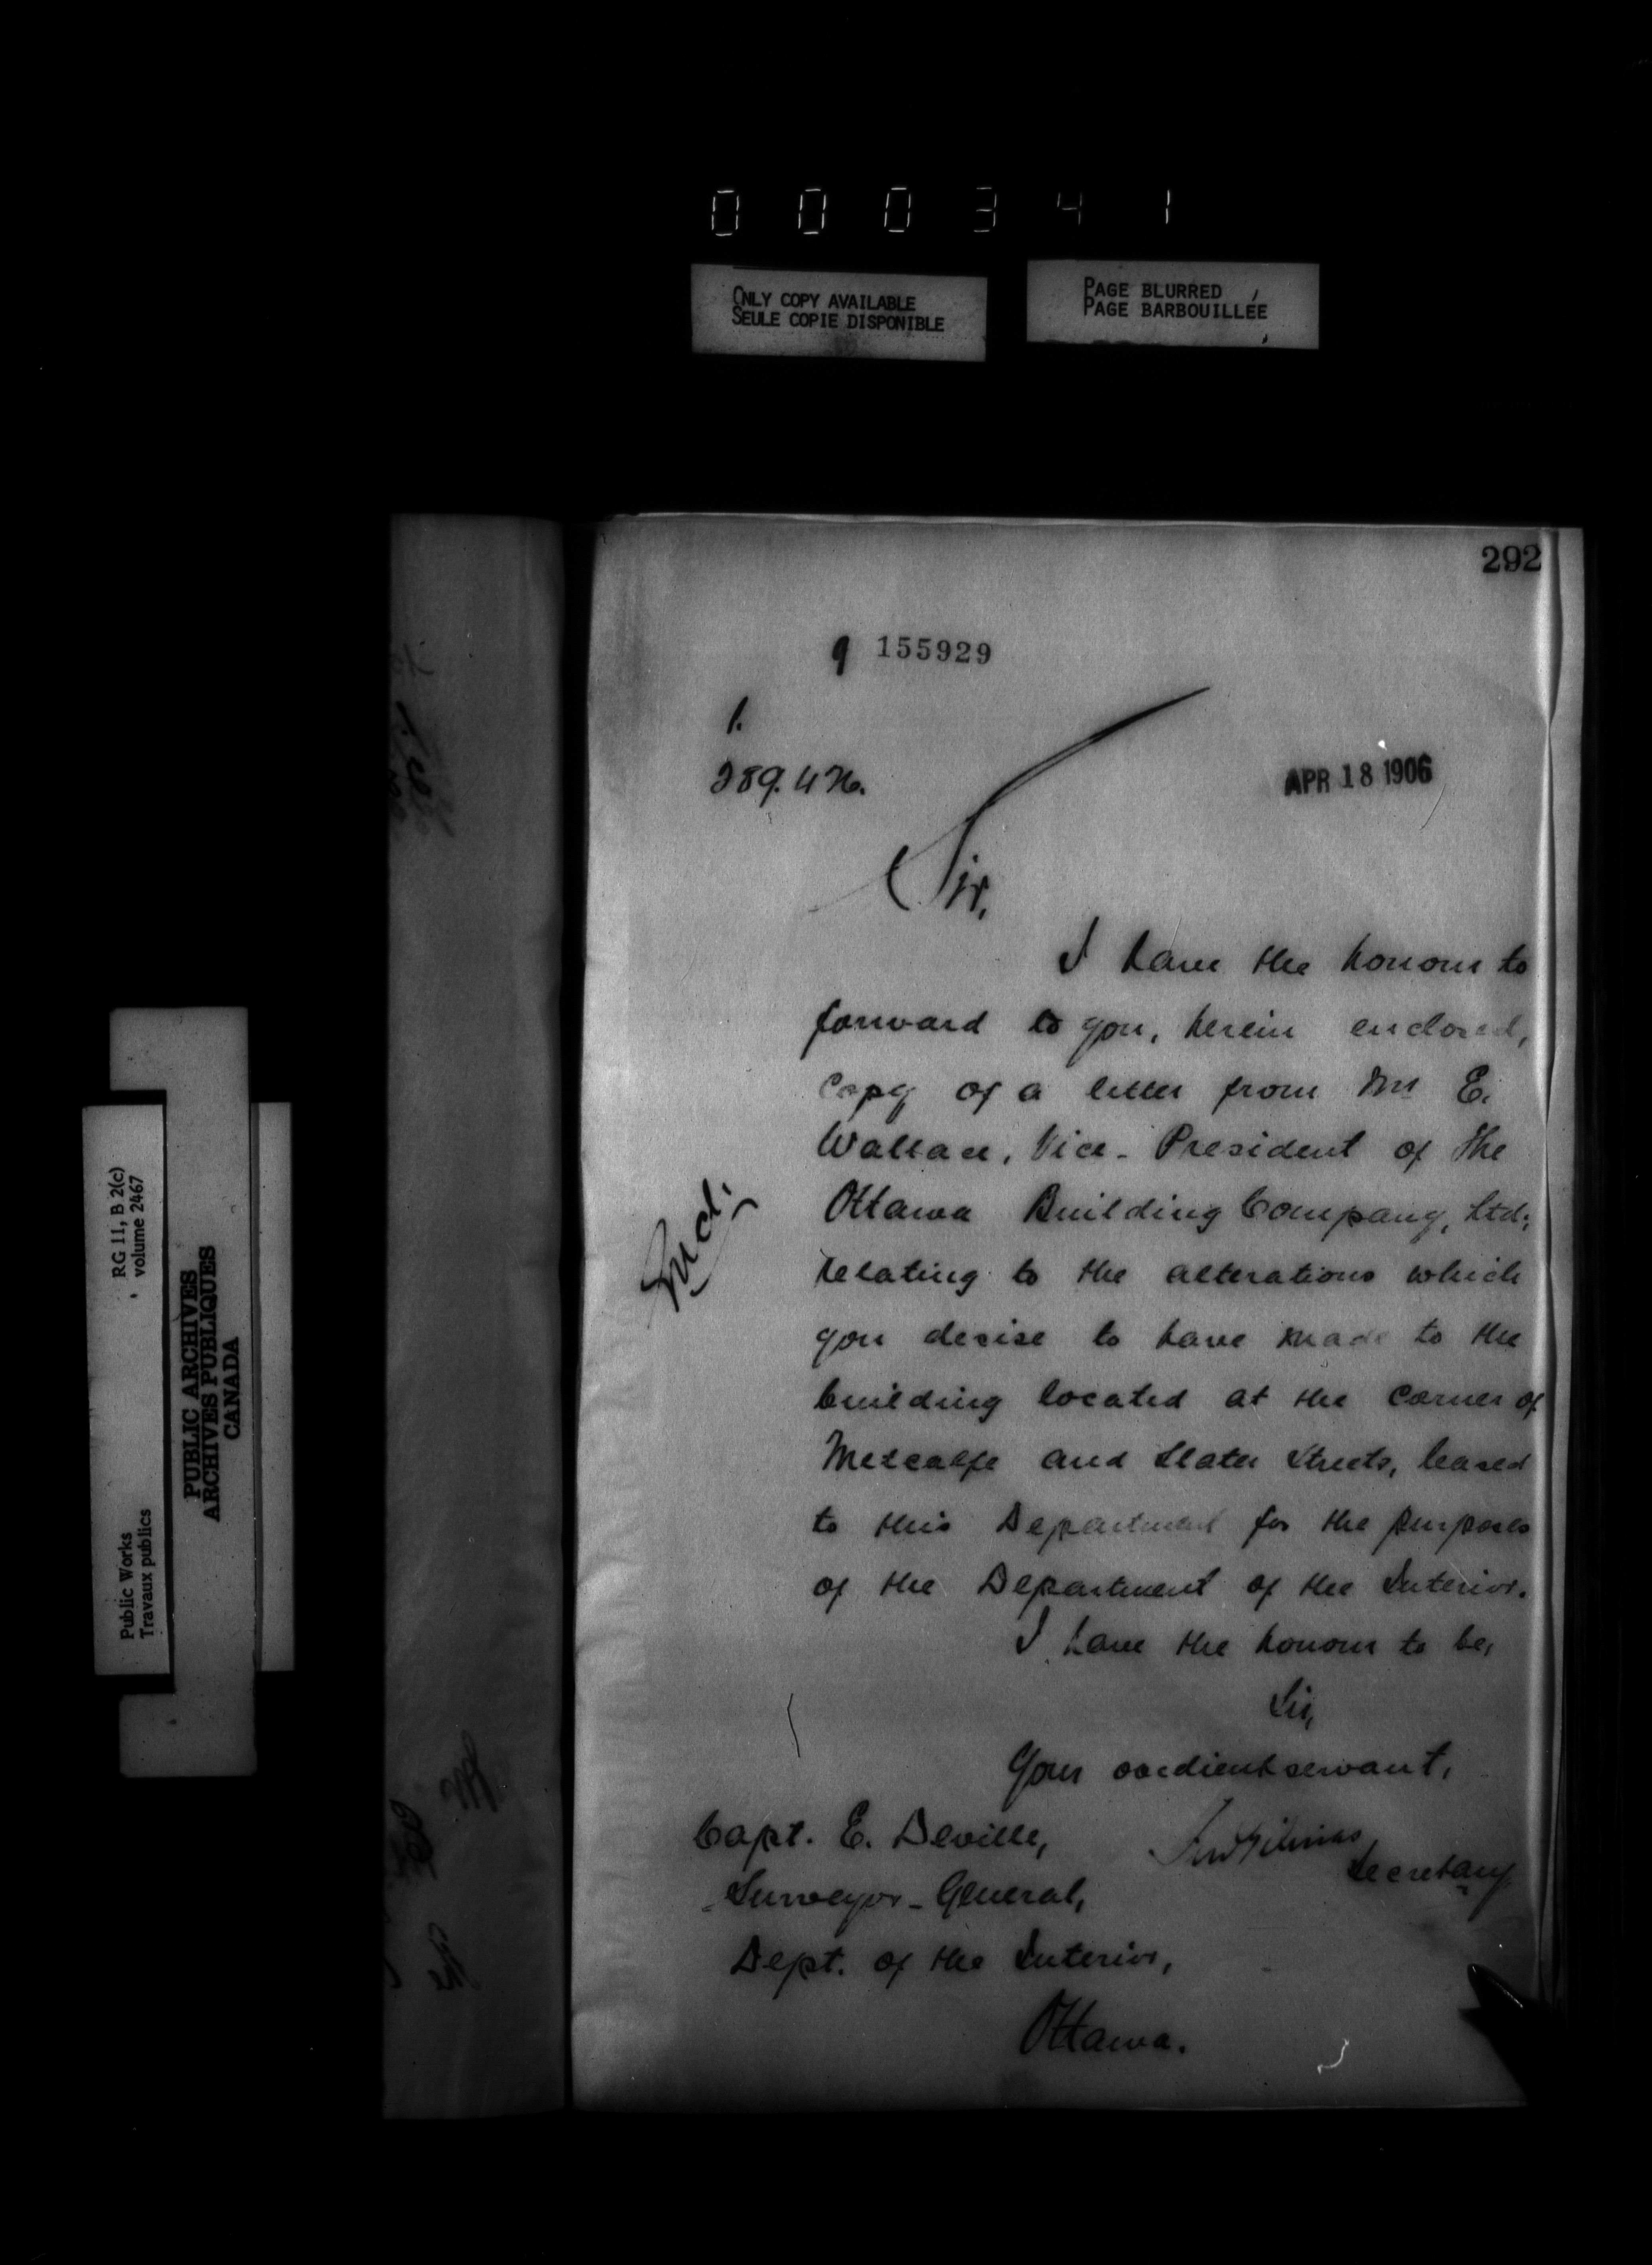 000341
ONLY COPY AVAILABLE
SEULE COPIE DISPONIBLE
PAGE BLURRED
PAGE BARBOUILLÉE
292
9 155929
1.
APR 18 1906
Sir,
I have the honour to
forward to you, herein enclosed,
copy of a letter from Mr E.
Wallace, Vice-President of the
Ottawa Building Company, Ltd.,
relating to the alterations which
you desire to have made to the
building located at the corner of
Metcalfe and Slater Streets, leased
to this Department for the purposes
of the Department of the Interior.
I have the honour to be,
Sir,
Your obedient servant,
Secretary
Encl.
Capt. E. Deville,
Surveyor-General,
Dept. of the Interior,
Ottawa.
RG 11, B 2(c)
volume 2467
Public Works
Travaux publics
PUBLIC ARCHIVES
ARCHIVES PUBLIQUES
CANADA